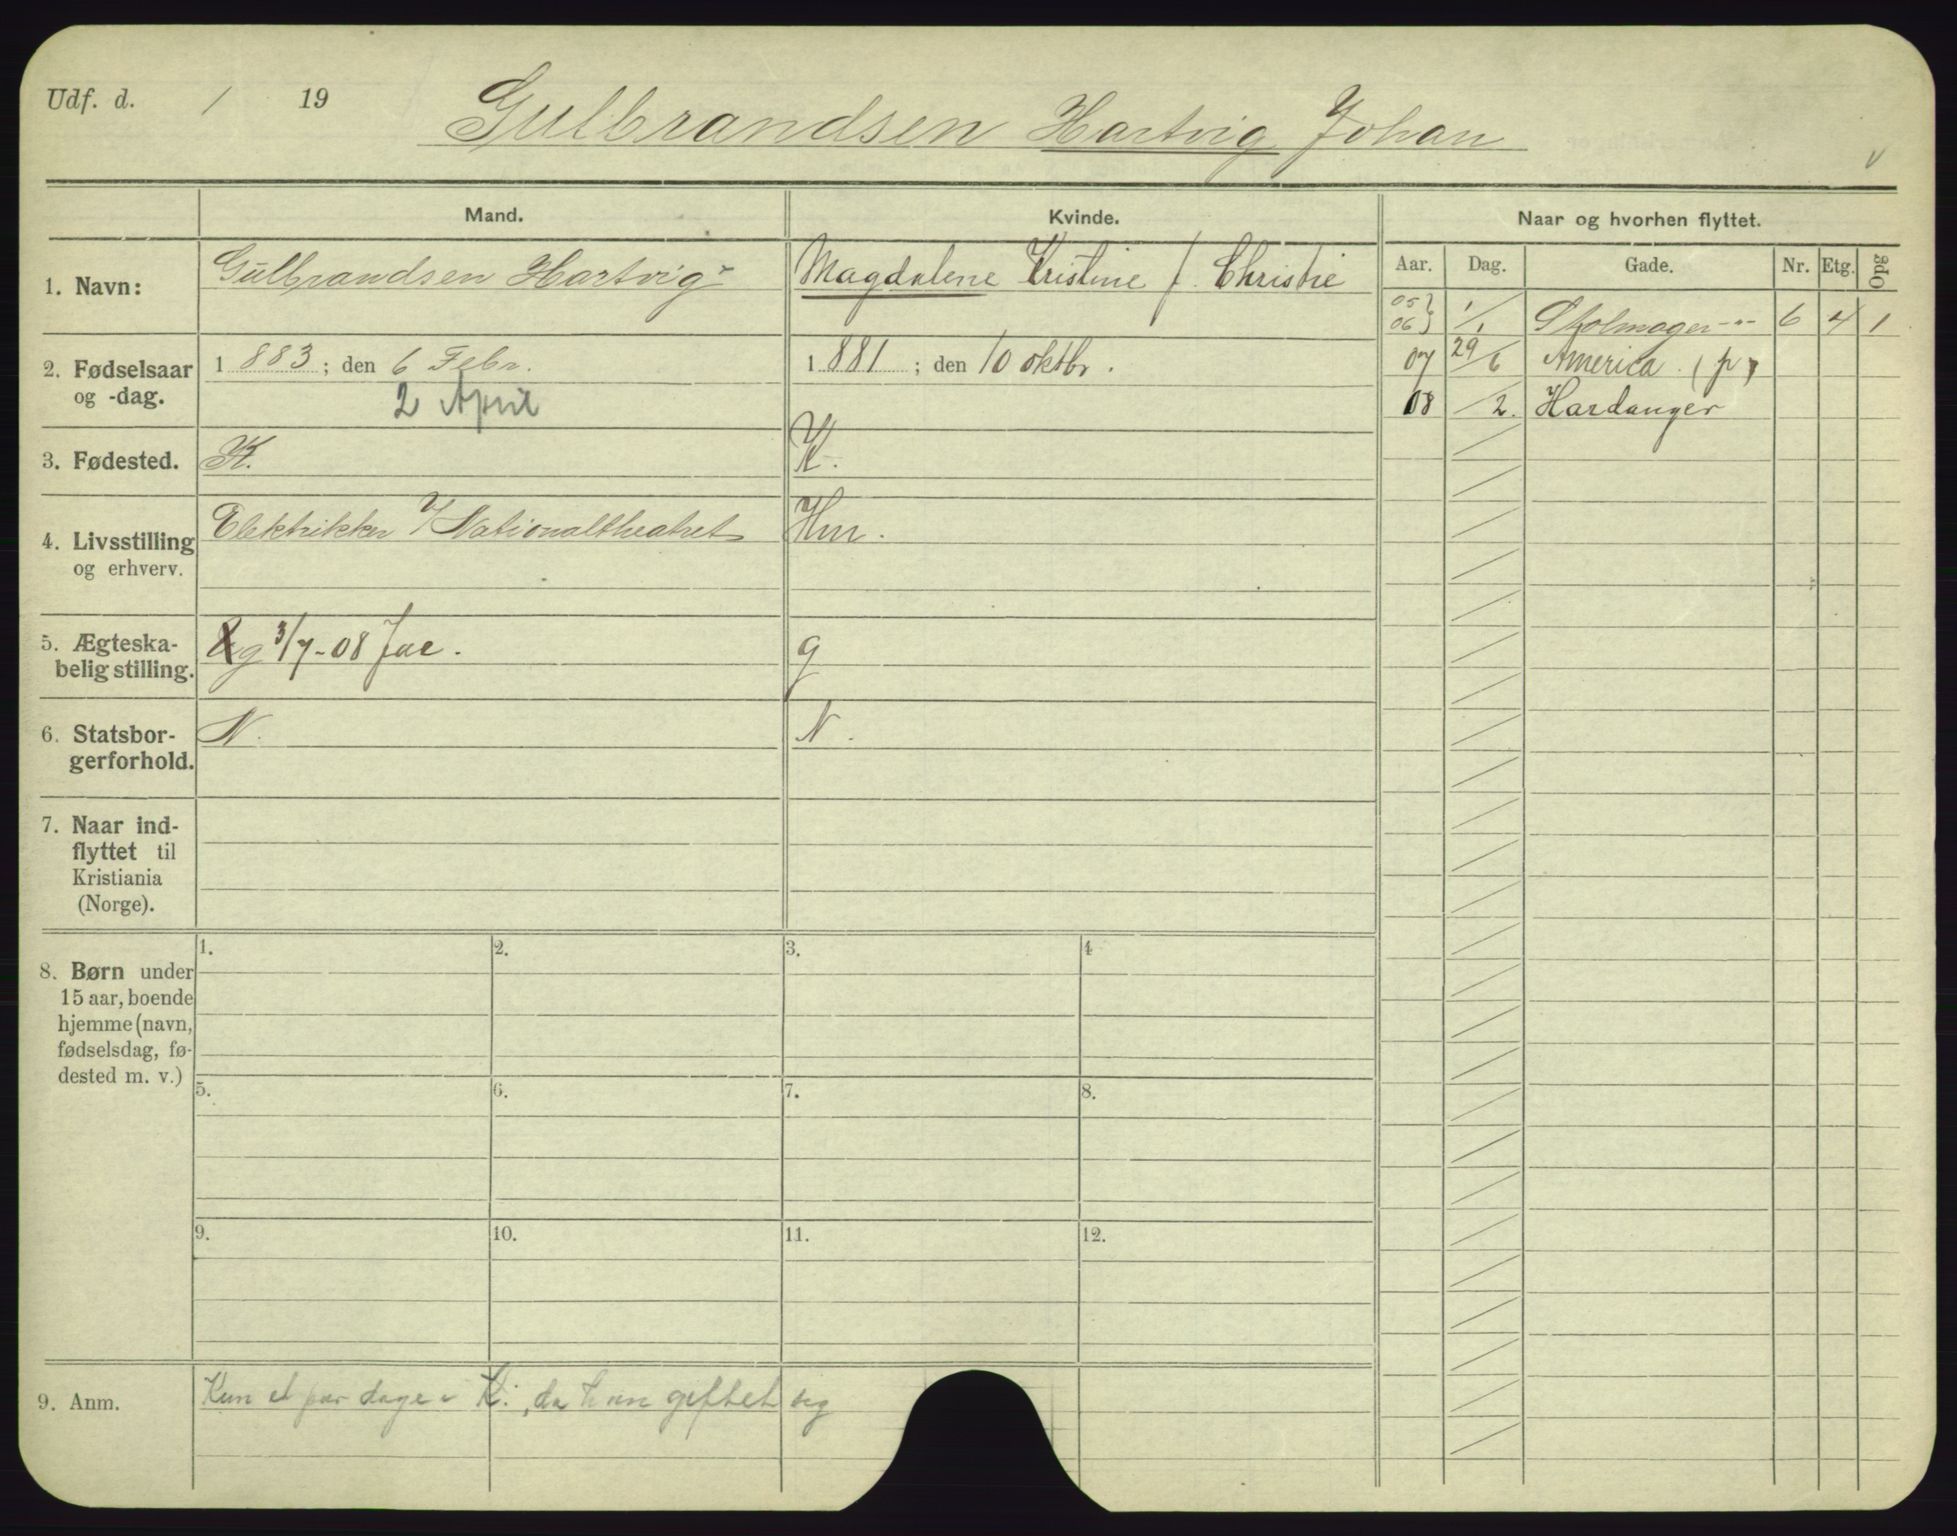 Udf. d. / 19
Gulbrandsen Hartvig Johan
Mand.
Kvinde.
Naar og hvorhen flyttet.
Aar. Dag. Gade. Nr. Etg. Opg
05 } 1/1 Skolmager-- 6 4 1
06 }
07 29/6 America (p)
08 /2. Hardanger
1. Navn:
Gulbrandsen Hartvig
Magdalene Kristine f. Christie
2. Fødselsaar
og -dag.
1883; den 6 Febr.
2 April
1881; den 10 oktbr.
3. Fødested.
K.
K.
4. Livsstilling
og erhverv.
Elektriker v/ Nationaltheatret
Hm.
5. Ægteska-
belig stilling.
g 3/7-08 Jac.
g
6. Statsbor-
gerforhold.
N.
N.
7. Naar ind-
flyttet til
Kristiania
(Norge).
8. Børn under
15 aar, boende
hjemme (navn,
fødselsdag, fø-
dested m. v.)
1. 2. 3. 4
5. 6. 7. 8.
9. 10. 11. 12.
9. Anm.
Kun et par dage i K., da han giftet sig